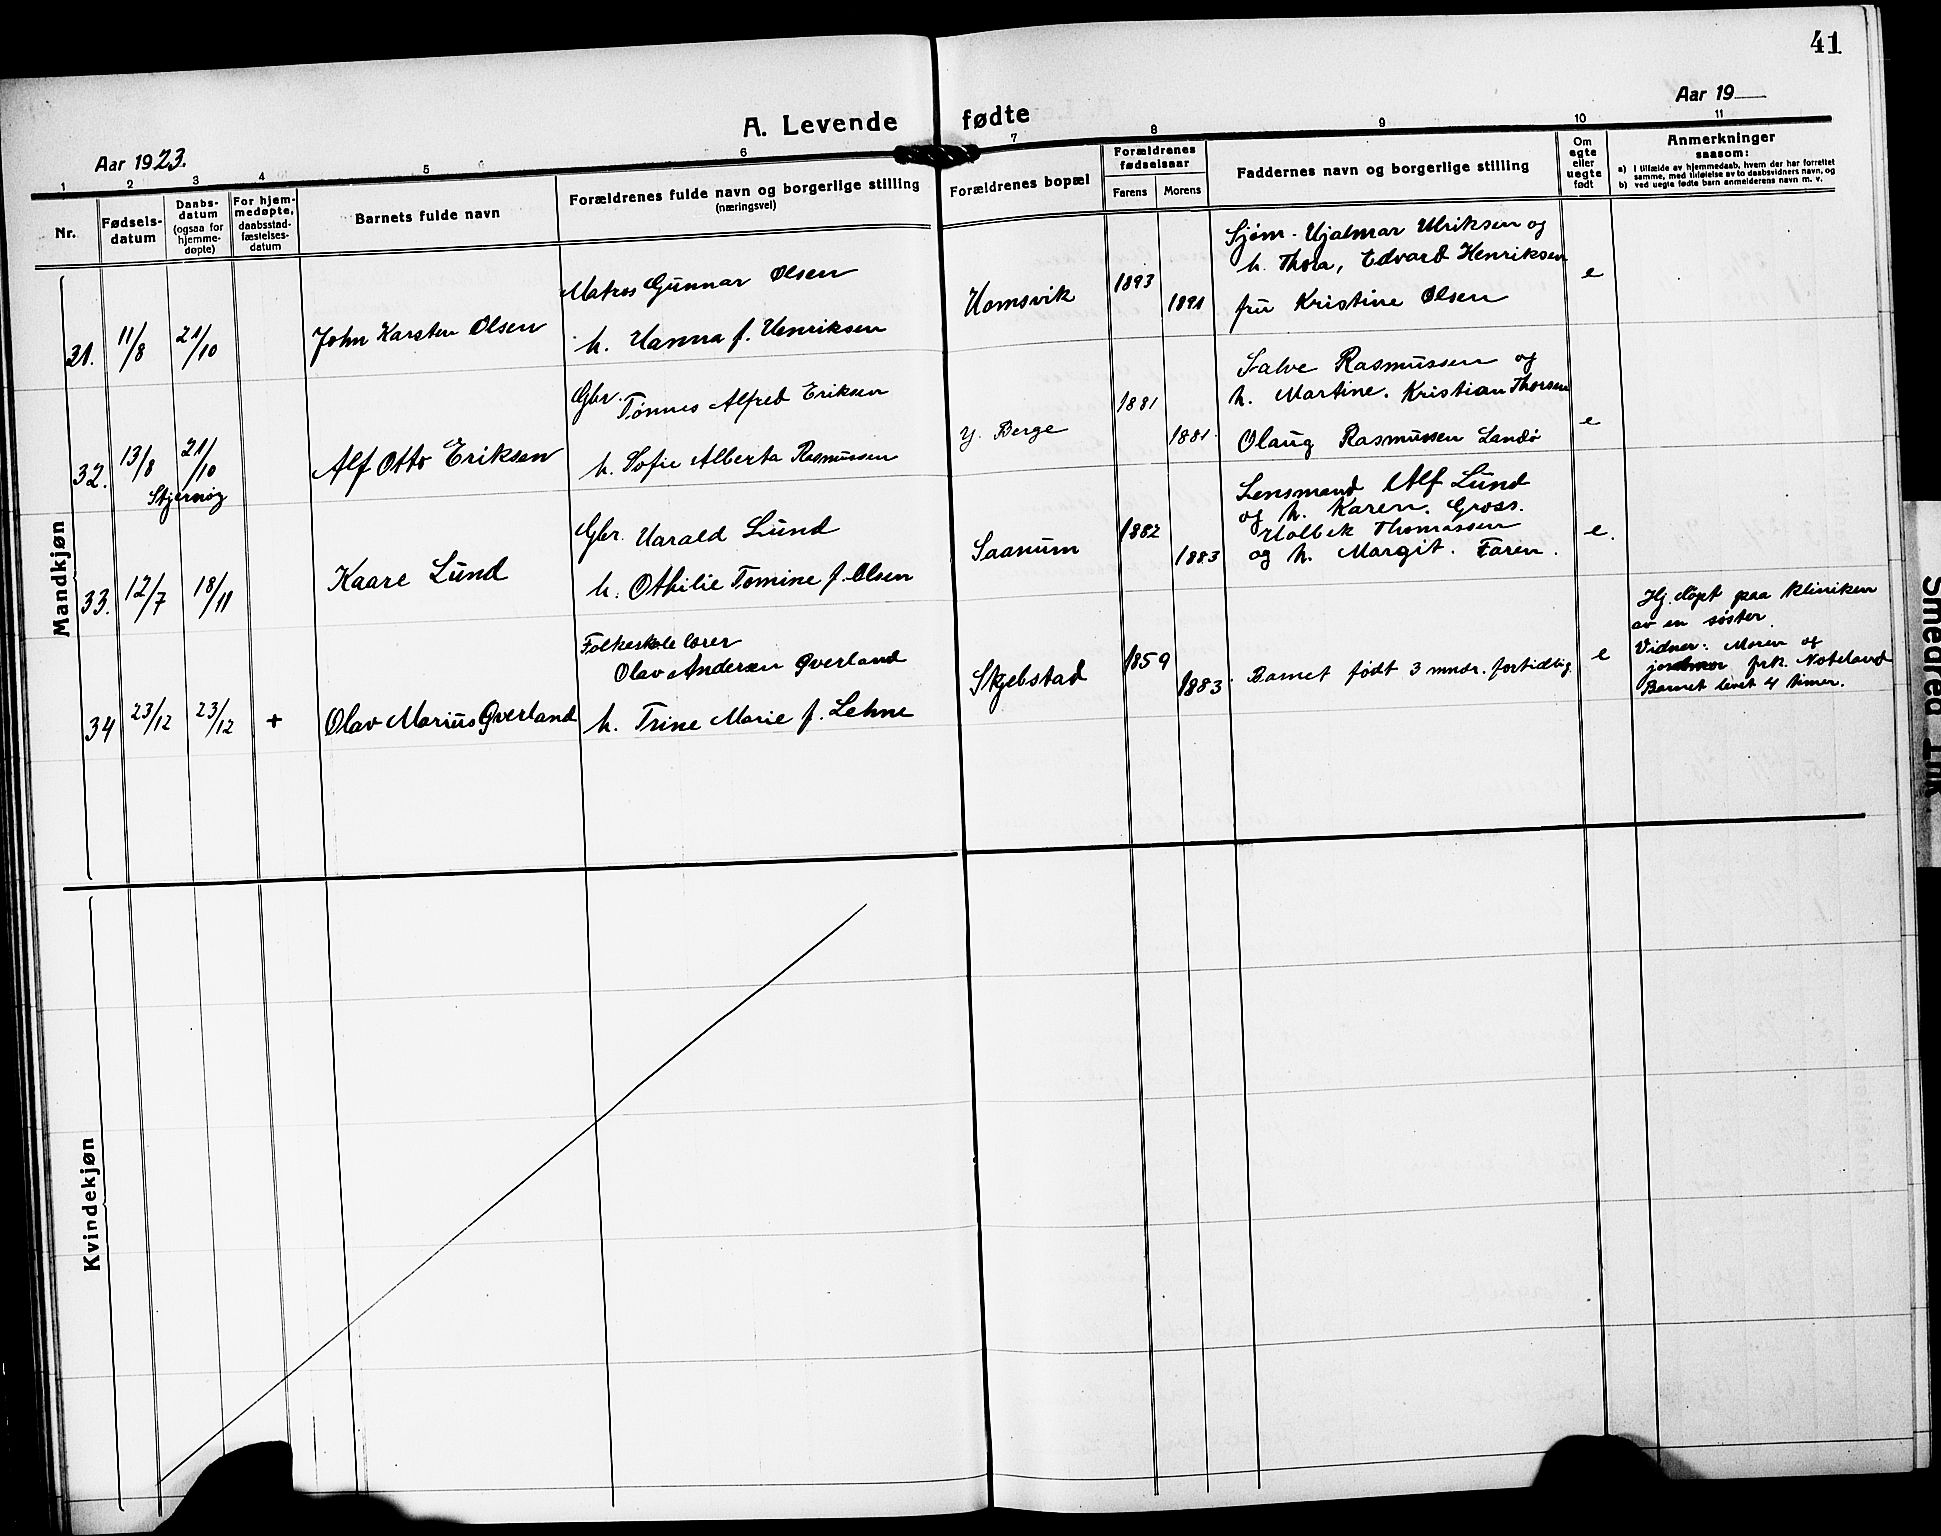 41
Aar 19
A. Levende fødte
Aar 1923.
1 2 3 4 5 6 7 8 9 10 11
Nr.
Fødsels-
datum
Daabs-
datum
(ogsaa for
hjemme-
døpte)
For hjem-
medøpte,
daabsstad-
fæstelses-
datum
Barnets fulde navn
Forældrenes fulde navn og borgerlige stilling
(næringsvei)
Forældrenes bopæl
Forældrenes
fødselsaar
Farens Morens
Faddernes navn og borgerlige stilling
Om
egte
eller
uegte
født
Anmerkninger
saasom:
a) I tilfælde av hjemmedaab, hvem der har forrettet
samme, med tilføielse av to daabsvidners navn, og
b) ved uegte fødte barn anmelderens navn m. v.
Mandkjøn
31. 11/8 21/10
John Karsten Olsen
Matros Gunnar Olsen
h. Hanna f. Henriksen
Homsvik
1893
1891
Sjøm. Hjalmar Ulriksen og
h. Thora, Edvard Henriksen
fru Kristine Olsen
e
32. 13/8 21/10
Alf Otto Eriksen
Gbr. Tønnes Alfred Eriksen
h. Sofie Alberta Rasmussen
Y. Berge
1881
1881.
Salve Rasmussen og
h. Martine. Kristian Thorsen
Olaug Rasmussen Landø
e
Stjernøy
33. 12/7 18/11
Kaare Lund
Gbr. Harald Lund
h. Othilie Tomine f. Olsen
Saanum
1882
1883
Lensmand Alf Lund
og h. Karen. Gross.
Holbek Thomassen
og h. Margit. Faren.
e.
34 23/12 23/12 +
Olav Marius Øverland
Folkeskolelærer
Olav Andersen Øverland
h. Trine Marie f. Lehne
Skjebstad
1859
1883.
Barnet født 3 mndr. fortidlig.
e
Hj. døpt paa kliniken
av en søster.
Vidner: Moren og
jordmor frk. Noteland
Barnet levet 4 timer.
Kvindekjøn